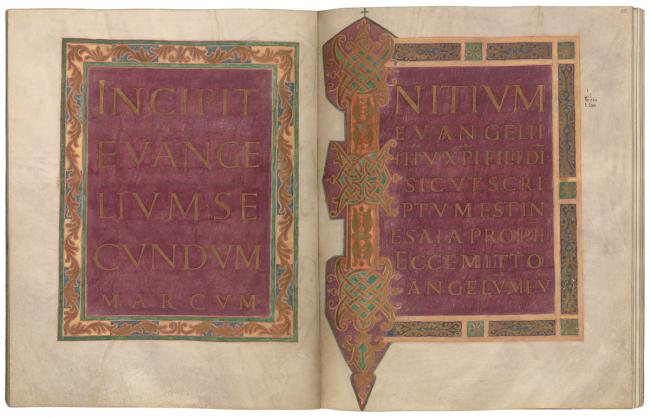 INCIPIT
EVANGE
LIVM·SE
CVNDVM
MARCVM
INITIVM
EVANGELII
IHV XPI FILII DI
SICVT SCRI
PTVM EST IN
ESAIA PROPH
ECCE MITTO
ANGELVM MEV